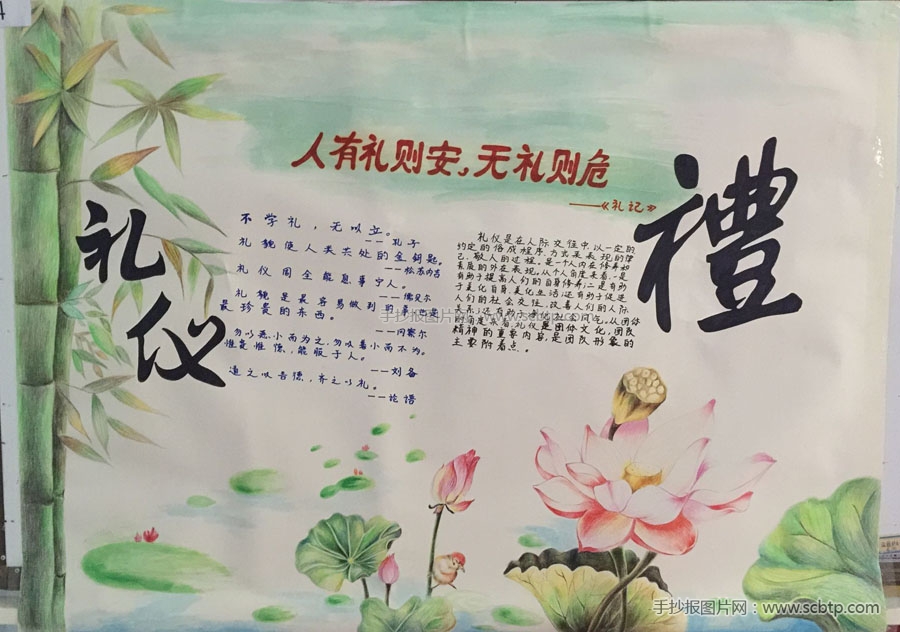 人有礼则安,无礼则危
——《礼记》
礼
仪
禮
不学礼，无以立。
——孔子
礼貌使人类共处的金钥匙。
——松苏内吉
礼仪周全能息事宁人。
——儒贝尔
礼貌是最容易做到的事,也是
最珍贵的东西。
——冈察尔
勿以恶小而为之,勿以善小而不为。
惟贤惟德,能服于人。
——刘备
道之以吾德,齐之以礼。
——论语
礼仪是在人际交往中,以一定的
约定的俗成程序、方式来表现的律
己、敬人的过程,是一个人内在修养和
素质的外在表现。从个人角度来看,一是
有助于提高人们的自身修养;二是有助
于美化自身、美化生活;还有助于促进
人们的社会交往,改善人们的人际
关系;还有助于净化社会风气。从团体
的角度来看,礼仪是团体文化,团队
精神的重要内容,是团队形象的
主要附着点。
手抄报图片网：www.scbtp.com